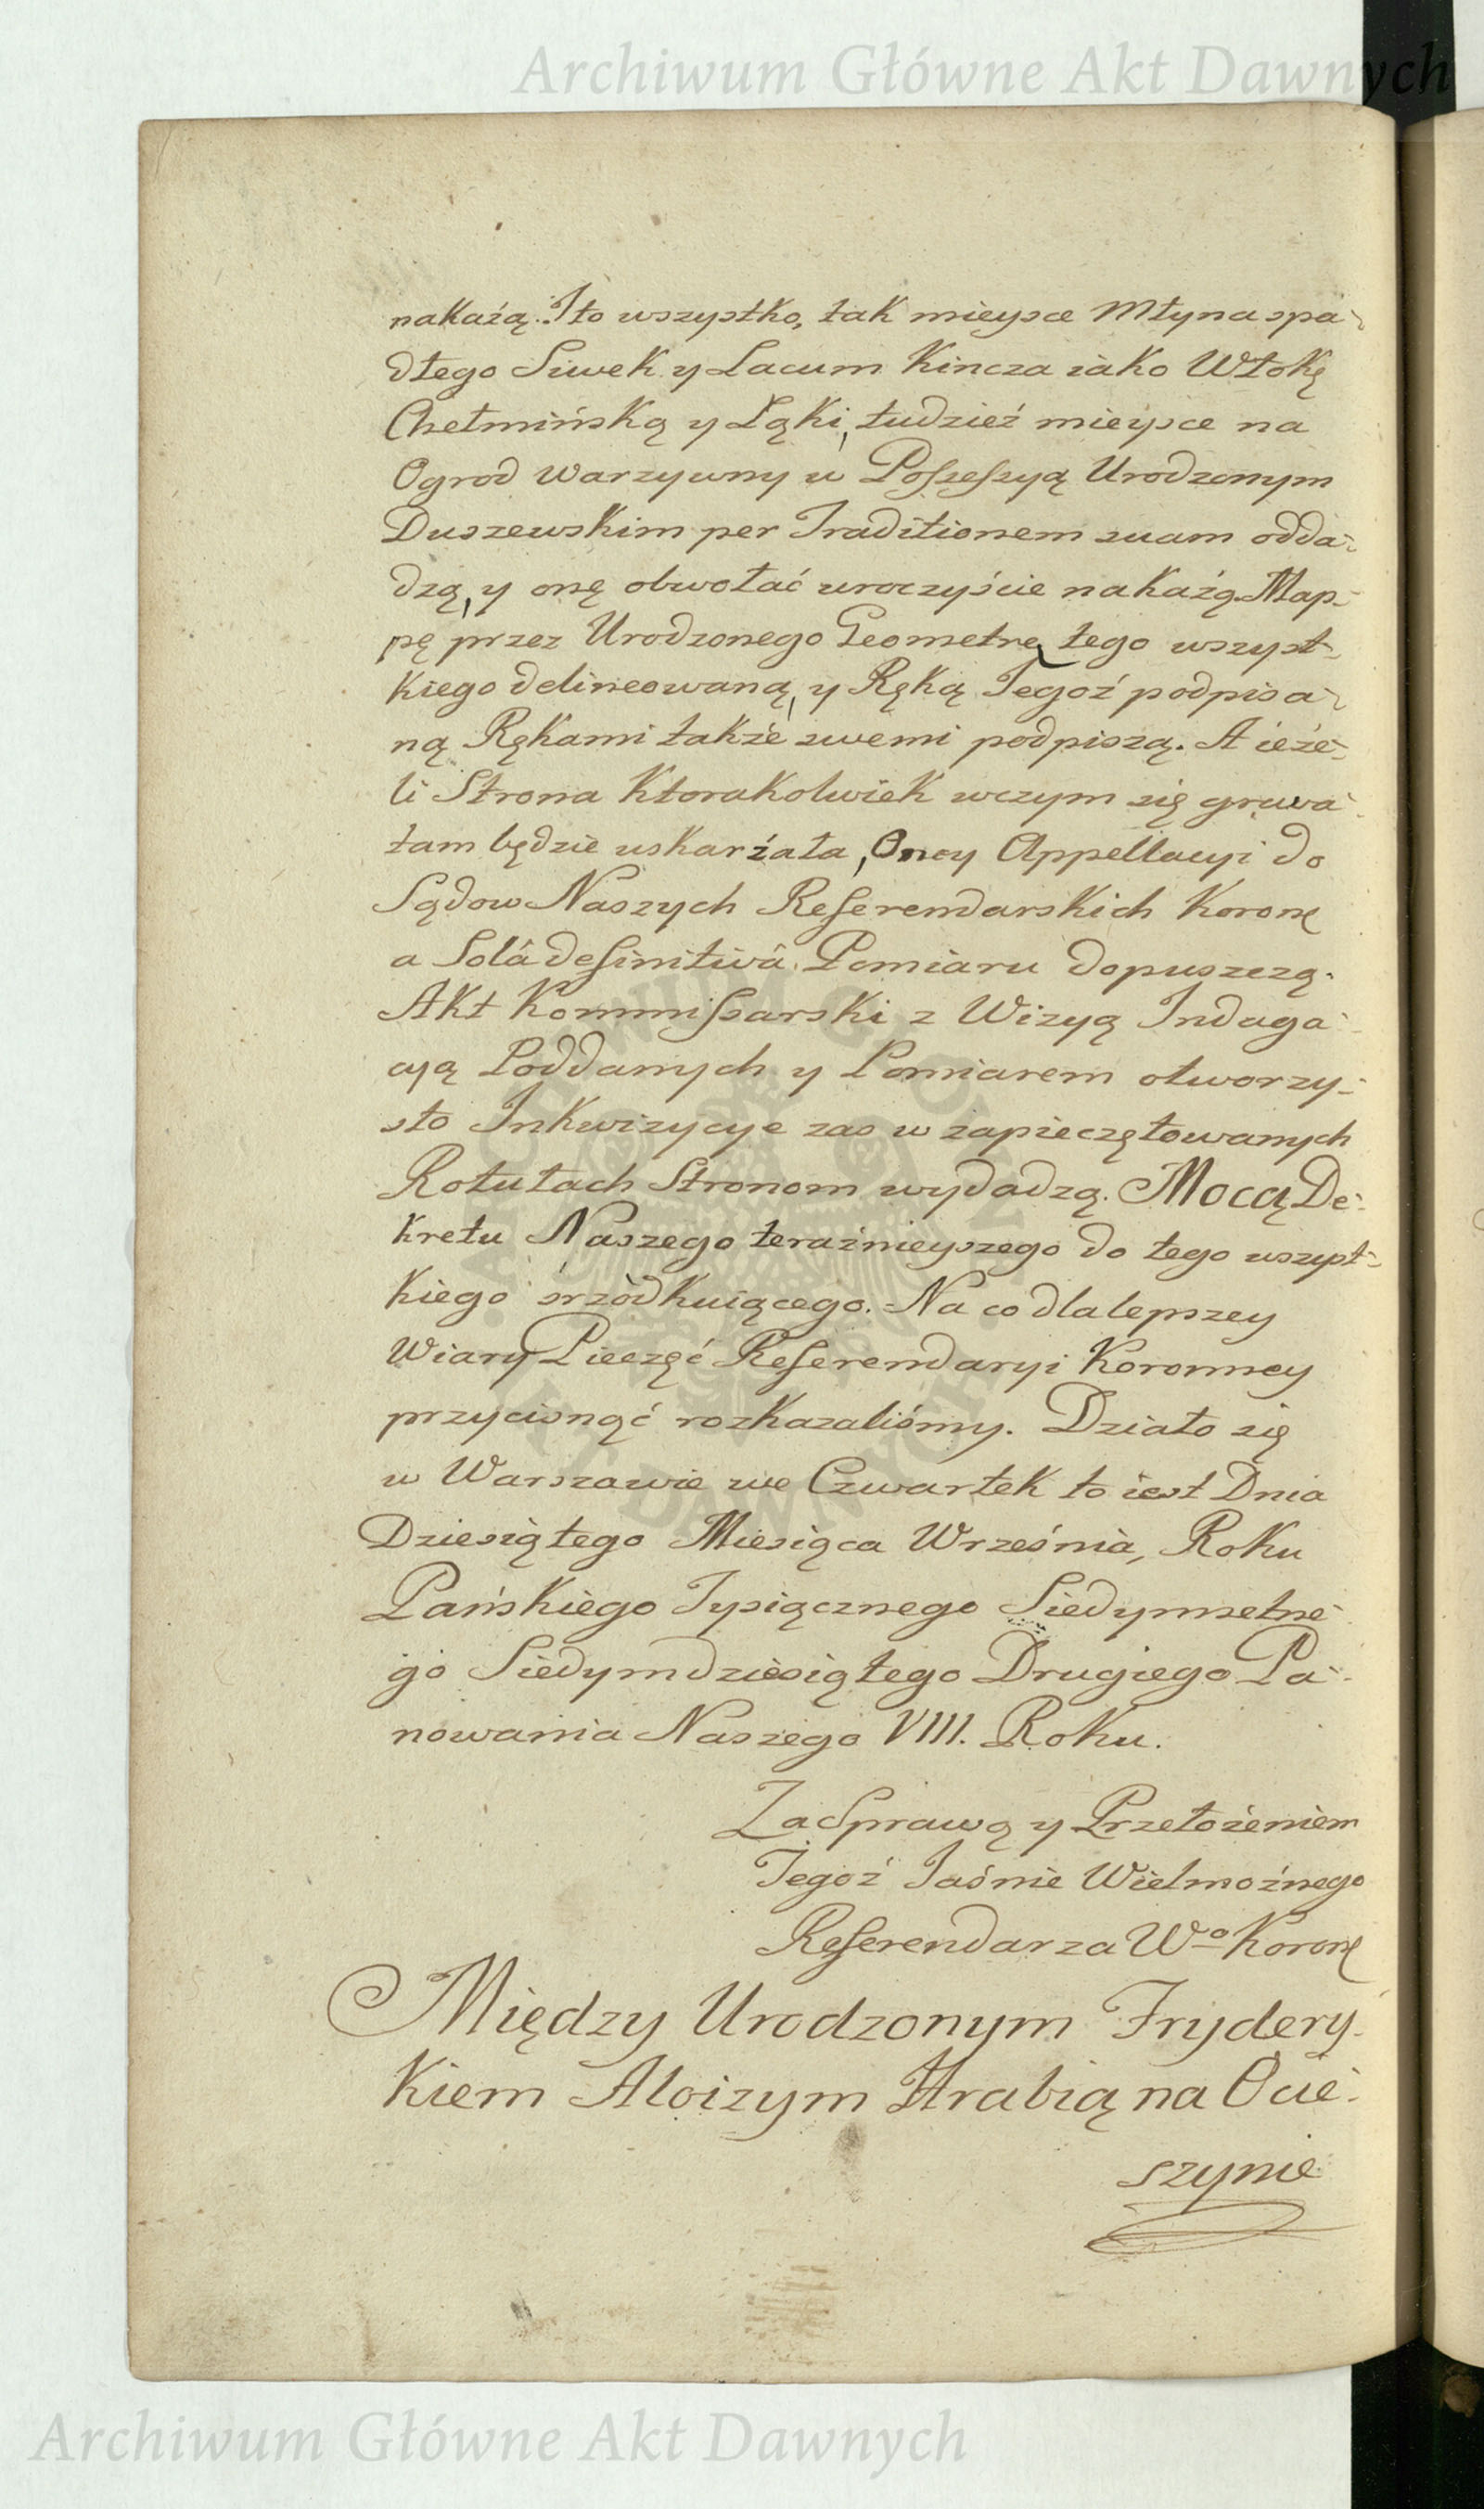 Archiwum Główne Akt Dawnych
nakażą. Ito wszystko, tak mieysce Młyna spa-
dłego Siwek y Lacum Kincza iako Włokę
Chełmińską y Łąki, tudzież mieysce na
Ogrod Warzywny w Possessyą Urodzonym
Duszewskim per Traditionem suam odda-
dzą, y onę obwołać uroczyście nakażą. Map-
pę przez Urodzonego Geometrę tego wszyst-
kiego delineowaną, y Ręką Tegoż podpisa-
ną Rękami także swemi podpiszą. A ieże-
li Strona Ktorakolwiek wczym się grava-
tam będzie uskarżała, Oney Appellacyi do
Sądow Naszych Referendarskich Koronę
a Solâ definitivâ Pomiaru dopuszczą.
Akt Kommissarski z Wizyą Indaga-
cyą Poddanych y Pomiarem otworzy-
sto Inkwizycye zas w zapieczętowanych
Rotułach Stronom wydadzą. Mocą De-
kretu Naszego teraźnieyszego do tego wszyst-
kiego śrzódkuiącego. Na co dla lepszey
Wiary Pieczęć Referendaryi Koronney
przycisnąć rozkazaliśmy. Działo się
w Warszawie we Czwartek to iest Dnia
Dziesiątego Miesiąca Września, Roku
Pańskiego Tysiącznego Siedymsetne-
go Siedymdziesiątego Drugiego Pa-
nowania Naszego VIII. Roku.
Za Sprawą y Przełożeniem
Tegoż Jaśnie Wielmożnego
Referendarza Wº Koronę
Między Urodzonym Frydery-
kiem Aloizym Hrabią na Ocie-
szynie
Archiwum Główne Akt Dawnych